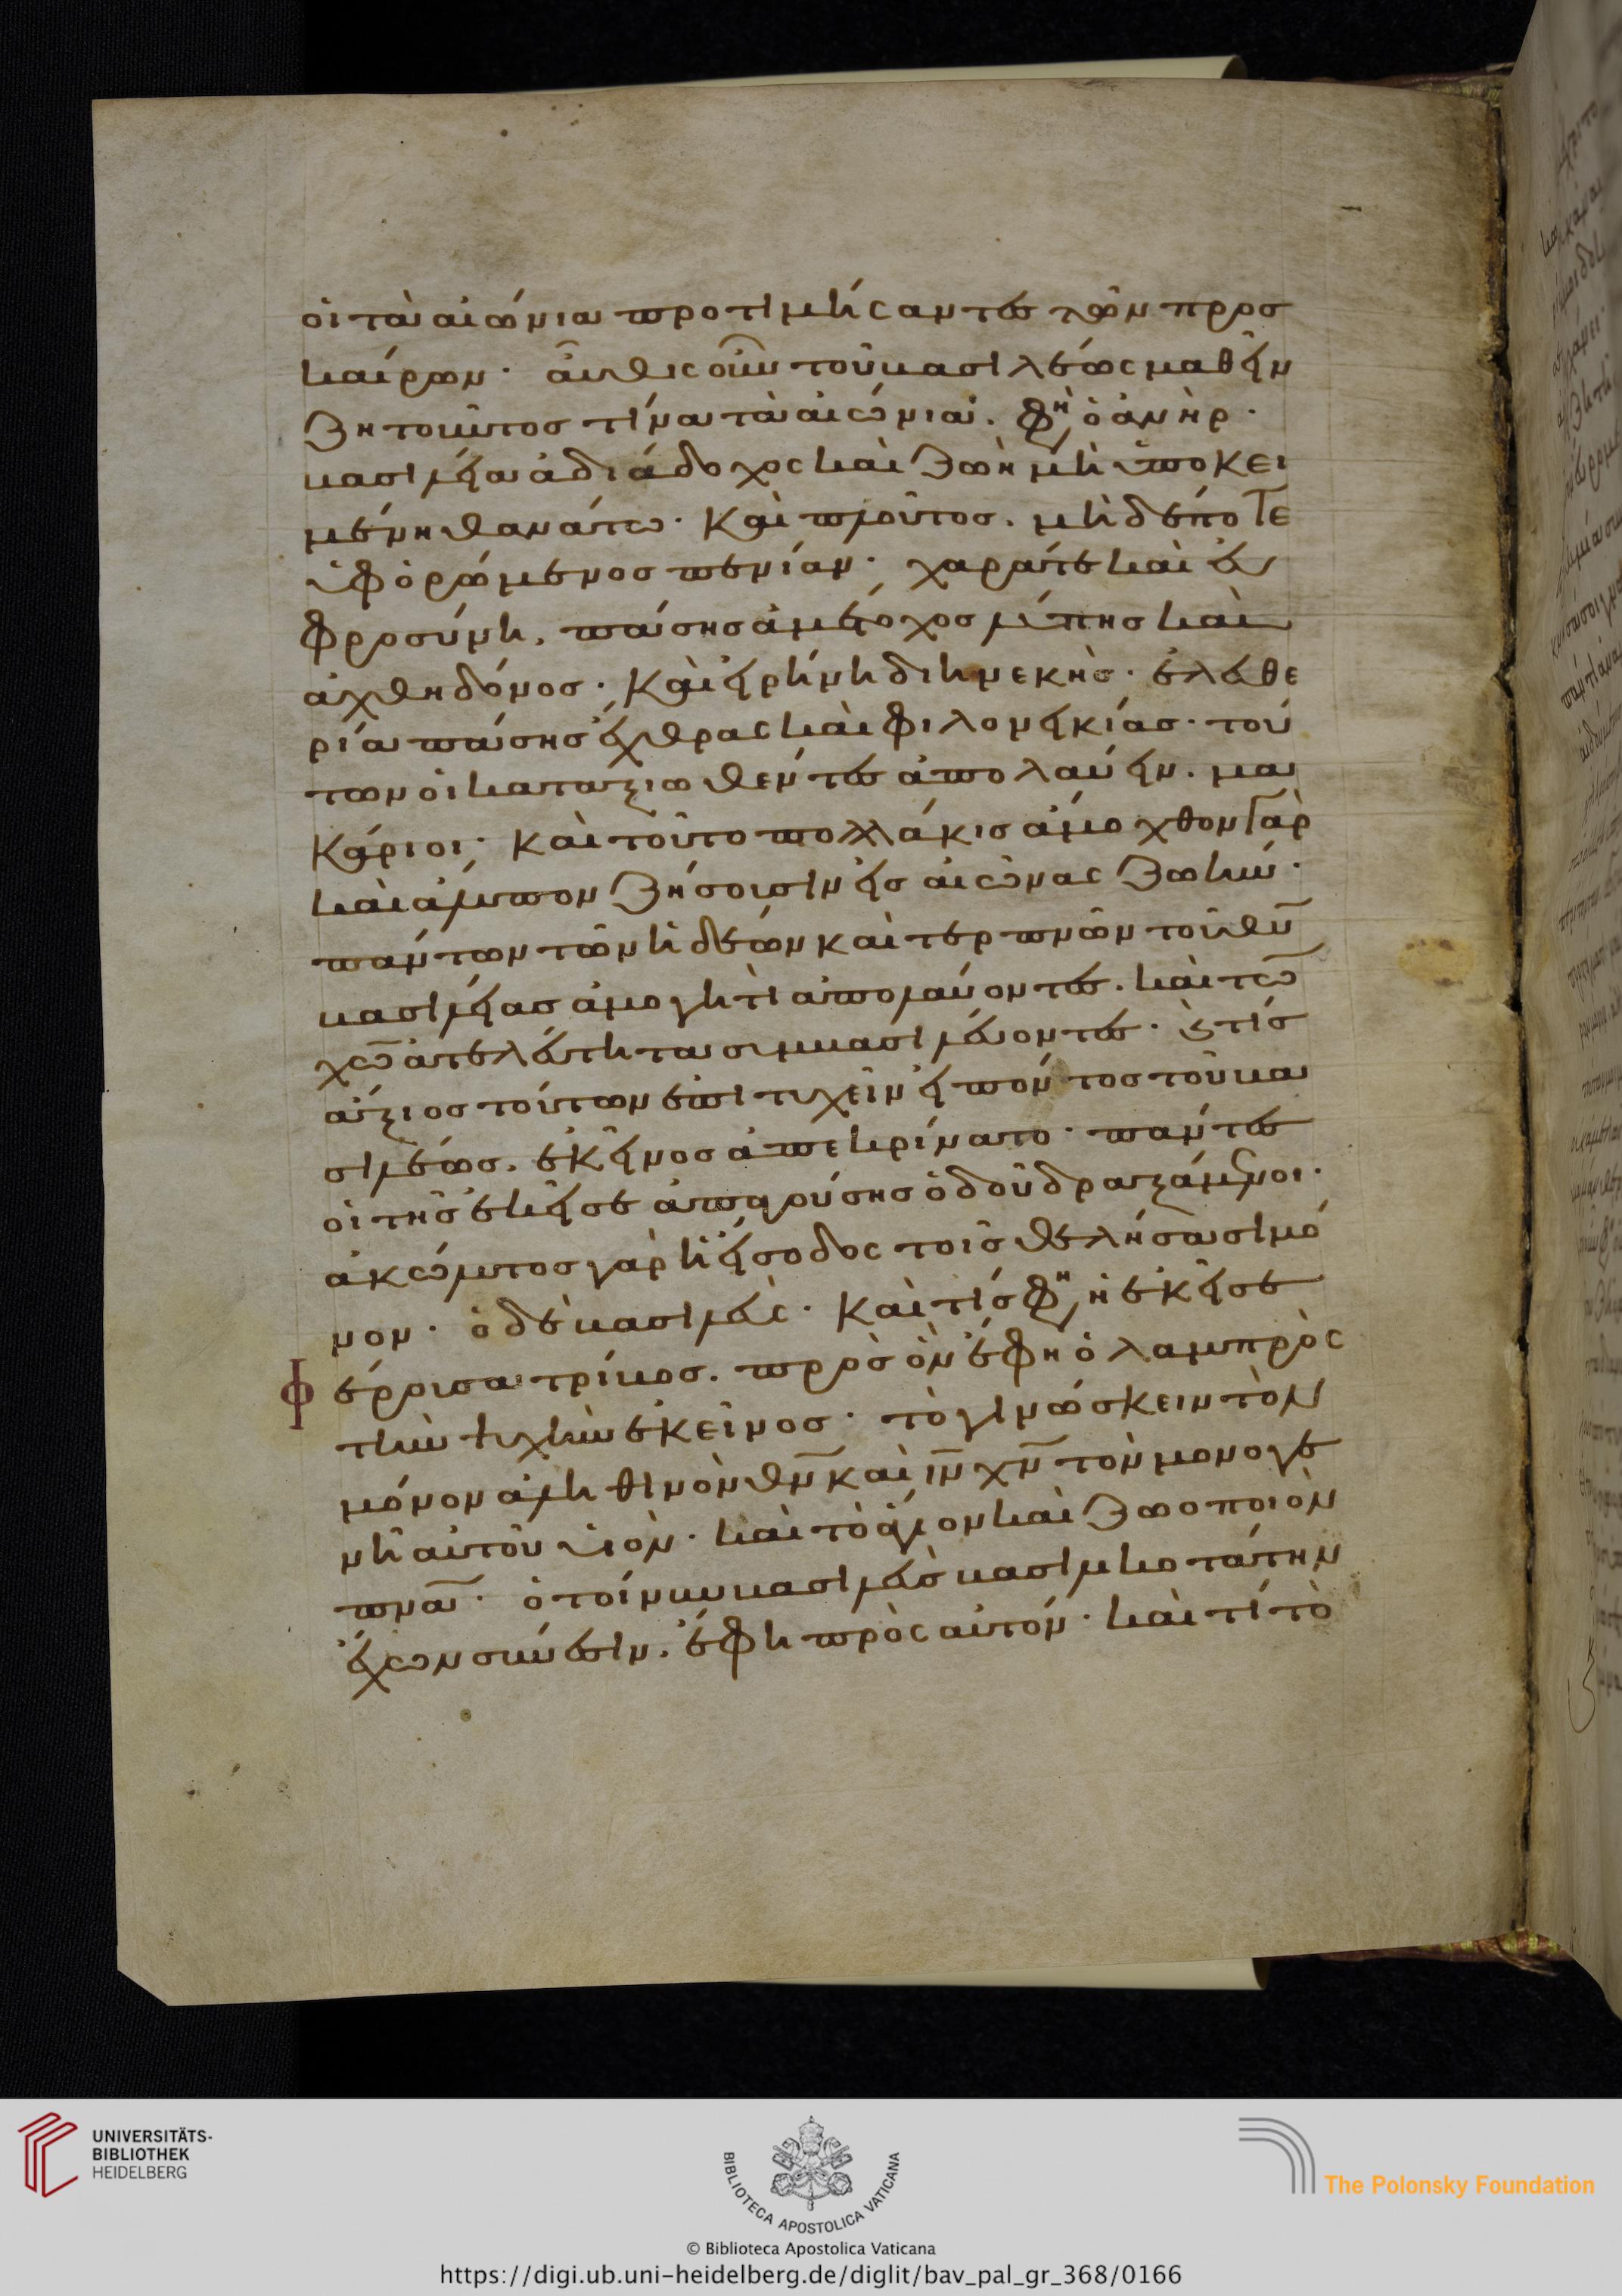 οἱ τὰ αἰώνια προτιμήσαντες τῶν προσ
καίρων· αὖθις οὖν τοῦ βασιλέως μαθεῖν
ζητοῦντος τίνα τὰ αἰώνια. φη ὁ ἀνήρ·
βασιλεία ἀδιάδοχος καὶ ζωὴ μὴ ὑποκει
μένη θανάτω· καὶ πλοῦτος. μηδέποτε
ὑφορώμενος πενίαν· χαρά τε καὶ εὐ
φροσύνη. πάσης ἀμέτοχος λύπης καὶ
ἀχθηδόνος· καὶ εἰρήνη διηνεκὴς· ἐλευθε
ρία πάσης ἔχθρας καὶ φιλονεικίας· τού
των οἱ καταξιωθέντες ἀπολαύειν. μα
κάριοι· καὶ τοῦτο πολλάκις ἄμοχθον γὰρ
καὶ ἄλυπον ζήσουσιν εἰς αἰῶνας ζωήν·
πάντων τῶν ἡδέων καὶ τερπνῶν τοῦ θυ
βασιλείας ἀμογητὶ ἀπολαύοντες. καὶ τῶ
χω ἀτελεύτητα συμβασιλεύοντες· καὶ τίς
ἄξιος τούτων ἐπιτυχεῖν εἰπόντος τοῦ βα
σιλέως. ἐκεῖνος ἀπεκρίνατο· πάντες
οἱ τῆς ἐκεῖσε ἀπαγούσης ὁδοῦ δραξάμενοι·
ἀκώλυτος γὰρ ἡ εἴσοδος τοῖς θελήσασι μό
νον· ὁ δὲ βασιλεὺς· καὶ τίς φη ἡ ἐκεῖσε
φέρουσα τρίβος. πρὸς ὃν ἔφη ὁ λαμπρὸς
τὴν ψυχὴν ἐκεῖνος· τὸ γινώσκειν τὸν
μόνον ἀληθινὸν θν καὶ ιν χν τὸν μονογε
νῆ αὐτοῦ υἱὸν· καὶ τὸ ἅγιον καὶ ζωοποιὸν
πνα· ὁ τοίνυν βασιλεὺς βασιλικωτάτην
ἔχων σύνεσιν. ἔφη πρὸς αὐτόν· καὶ τί τὸ
UNIVERSITÄTS-
BIBLIOTHEK
HEIDELBERG
BIBLIOTECA APOSTOLICA VATICANA
The Polonsky Foundation
© Biblioteca Apostolica Vaticana
https://digi.ub.uni-heidelberg.de/diglit/bav_pal_gr_368/0166